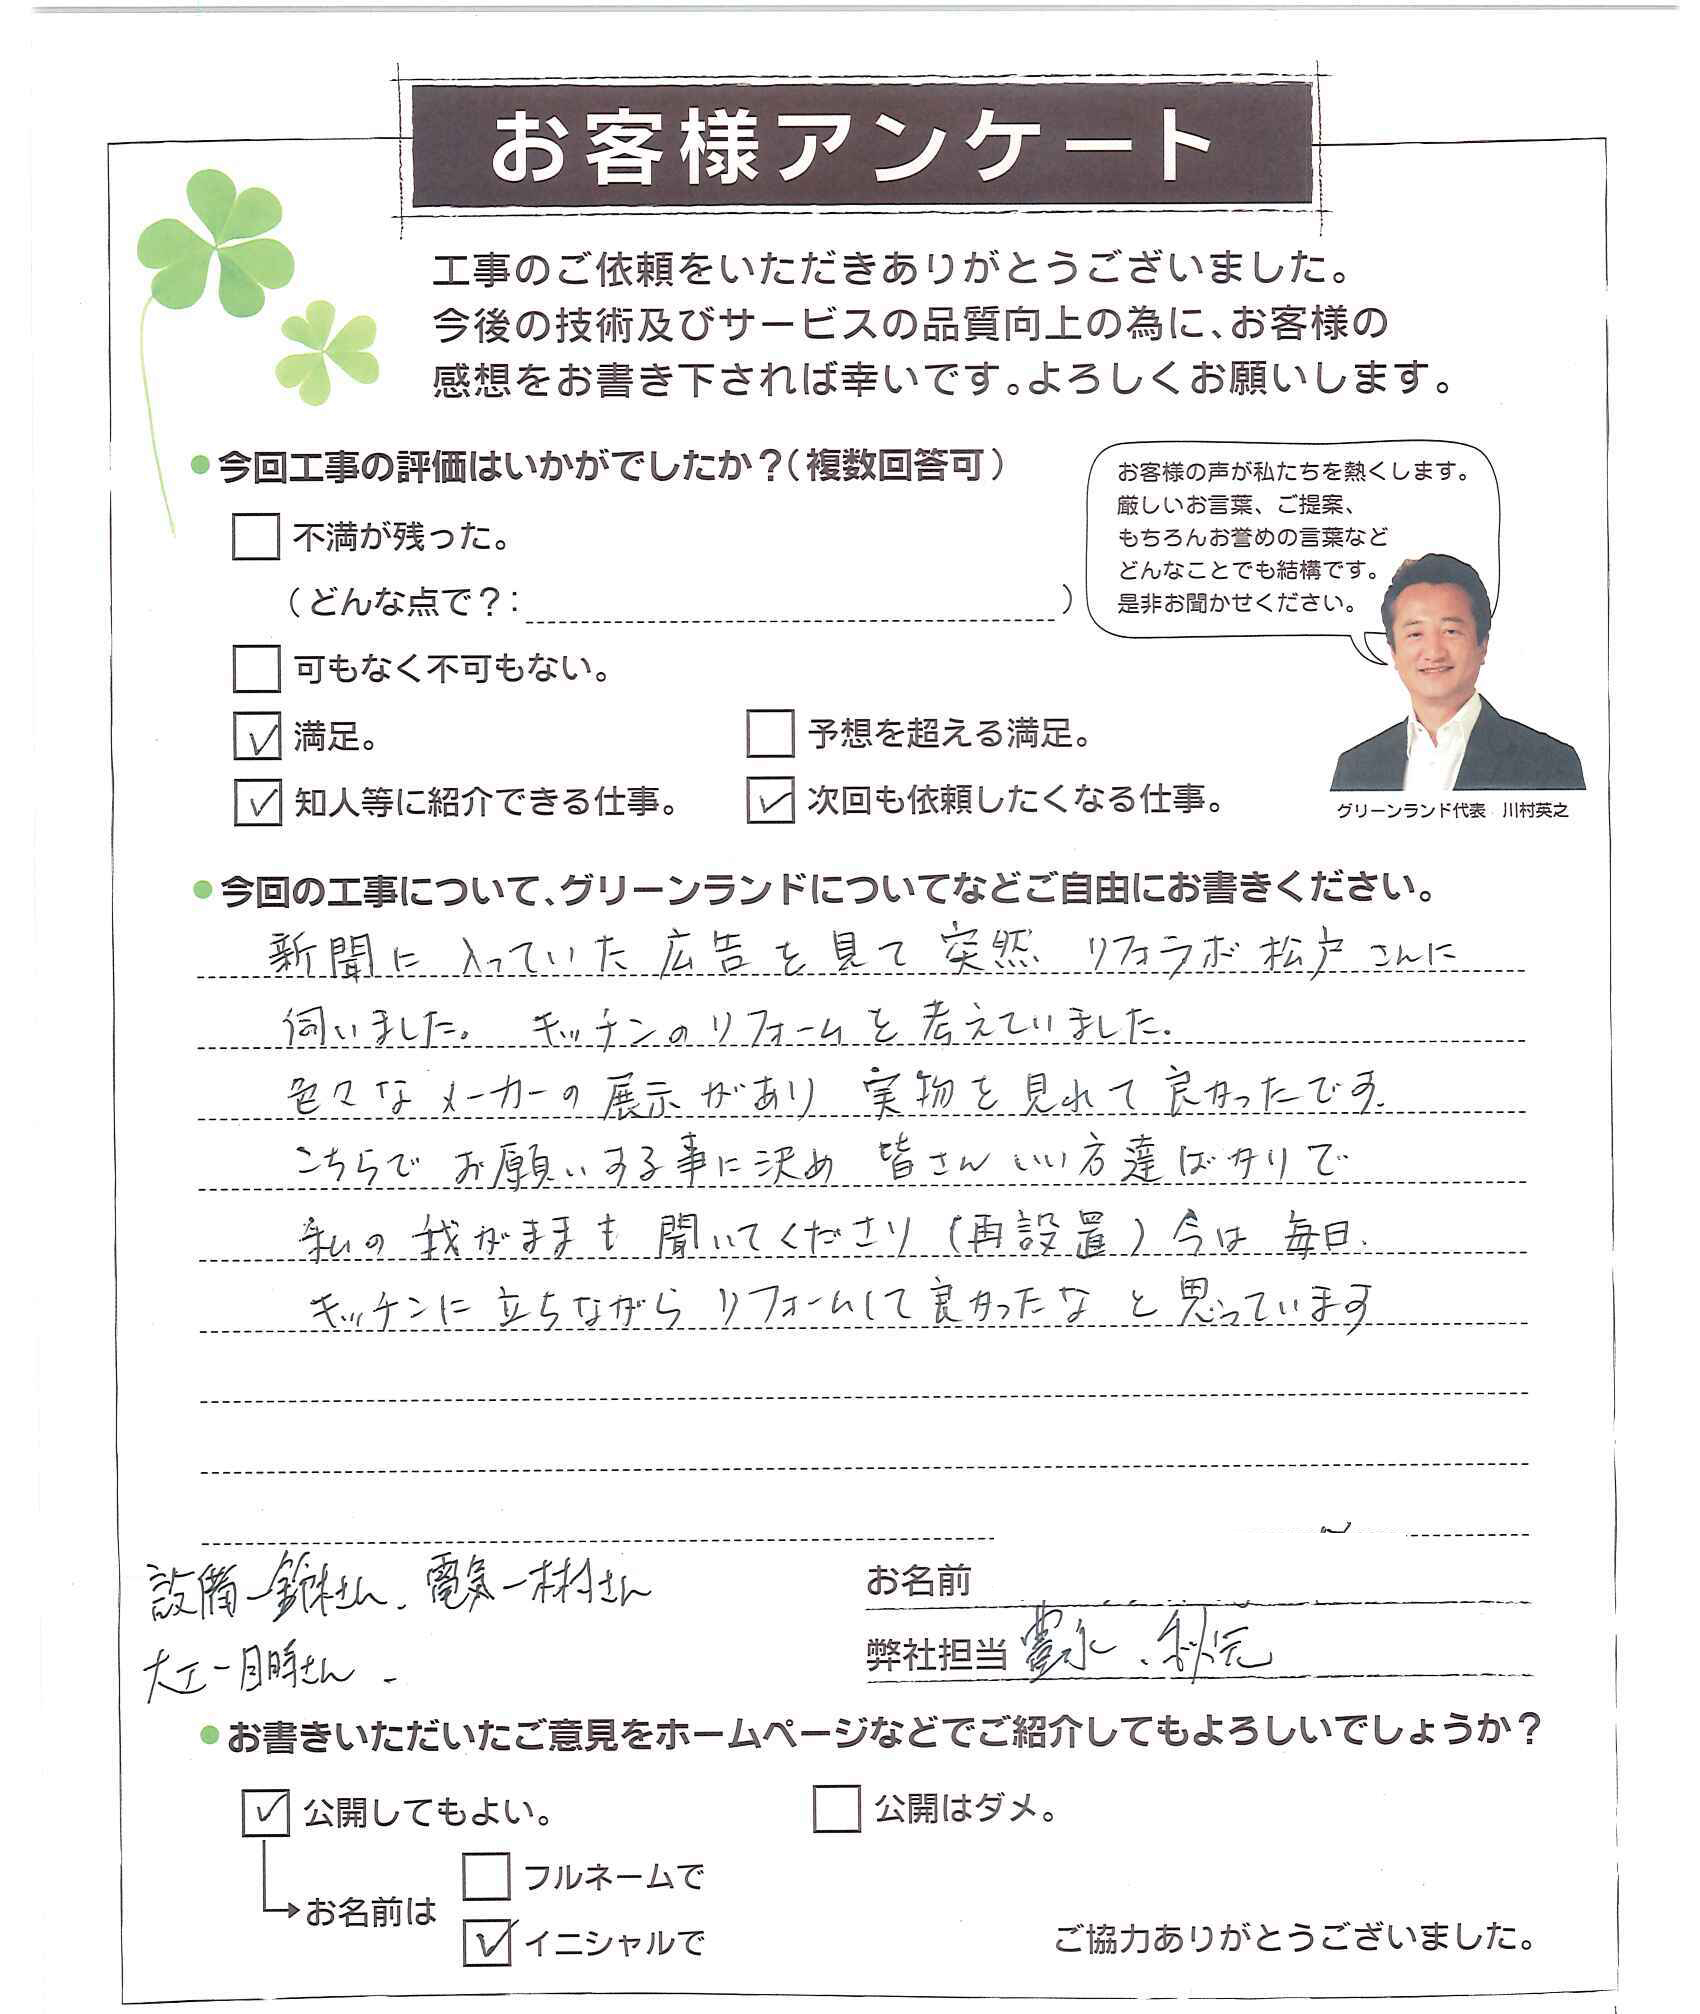 お客様アンケート
工事のご依頼をいただきありがとうございました。
今後の技術及びサービスの品質向上の為に、お客様の
感想をお書き下されば幸いです。よろしくお願いします。
●今回工事の評価はいかがでしたか？(複数回答可)
不満が残った。
(どんな点で？: )
可もなく不可もない。
満足。
予想を超える満足。
知人等に紹介できる仕事。
次回も依頼したくなる仕事。
お客様の声が私たちを熱くします。
厳しいお言葉、ご提案、
もちろんお誉めの言葉など
どんなことでも結構です。
是非お聞かせください。
グリーンランド代表 川村英之
●今回の工事について、グリーンランドについてなどご自由にお書きください。
新聞に入っていた広告を見て突然 リフォラボ松戸さんに
伺いました。 キッチンのリフォームを考えていました。
色々なメーカーの展示があり 実物を見れて良かったです。
こちらでお願いする事に決め 皆さんいい方達ばかりで
私の我がままも聞いてくださり(再設置)今は 毎日、
キッチンに立ちながらリフォームして良かったなと思っています
設備ー鈴木さん、電気ー木村さん
大工ー目時さん
お名前
弊社担当 秋元
●お書きいただいたご意見をホームページなどでご紹介してもよろしいでしょうか？
公開してもよい。
公開はダメ。
お名前は
フルネームで
イニシャルで
ご協力ありがとうございました。